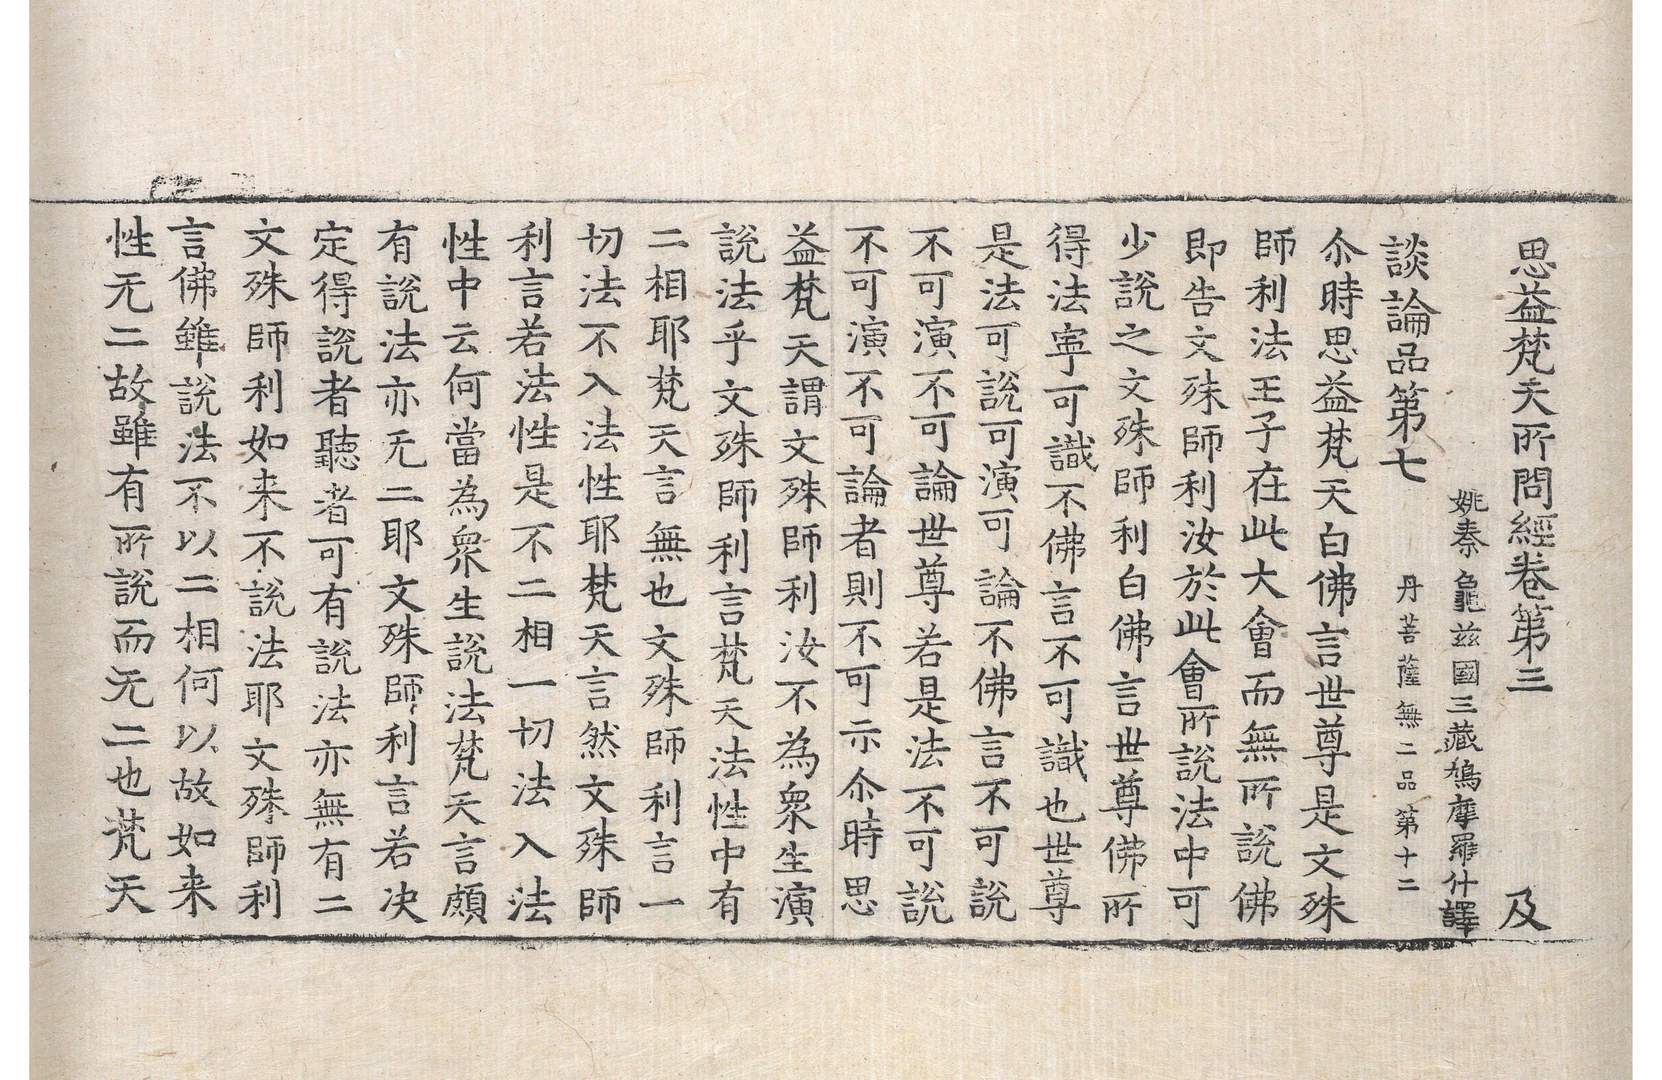 思益梵天所問經卷第三 及
姚秦龜兹國三藏鳩摩羅什譯
談論品第七 丹菩薩無二品第十二
尒時思益梵天白佛言世尊是文殊
師利法王子在此大會而無所說佛
即告文殊師利汝於此會所說法中可
少說之文殊師利白佛言世尊佛所
得法寧可識不佛言不可識也世尊
是法可說可演可論不佛言不可說
不可演不可論世尊若是法不可說
不可演不可論者則不可示尒時思
益梵天謂文殊師利汝不為衆生演
說法乎文殊師利言梵天法性中有
二相耶梵天言無也文殊師利言一
切法不入法性耶梵天言然文殊師
利言若法性是不二相一切法入法
性中云何當為衆生說法梵天言頗
有說法亦无二耶文殊師利言若决
定得說者聽者可有說法亦無有二
文殊師利如来不說法耶文殊師利
言佛雖說法不以二相何以故如来
性无二故雖有所說而无二也梵天